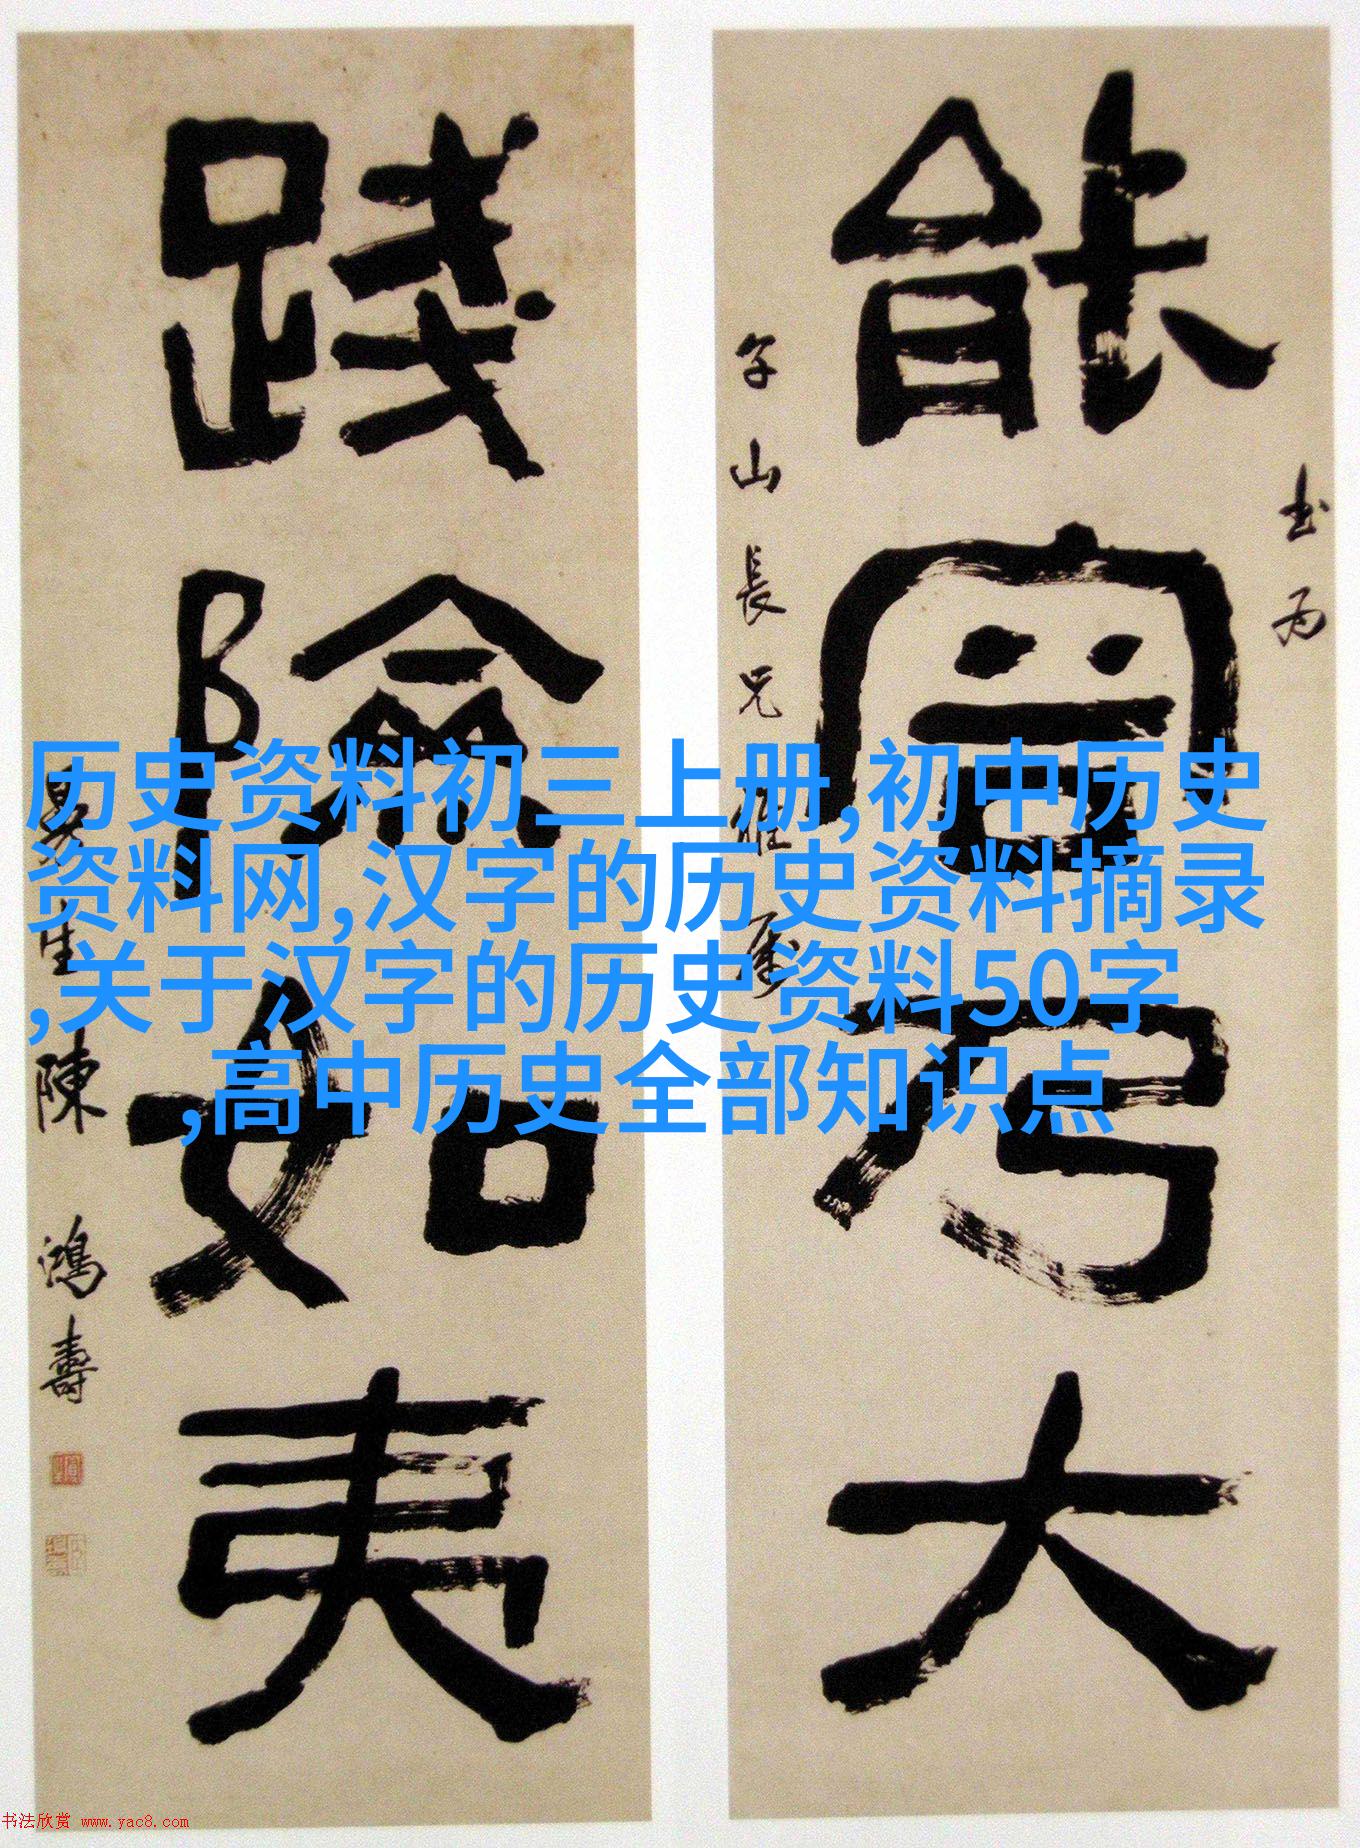 能容乃大
書為
山長兄雅屬
踐險如夷
曼生陳鴻壽
历史资料初三上册,初中历史
资料网,汉字的历史资料摘录
,关于汉字的历史资料50字
,高中历史全部知识点
书法欣赏 www.yac8.com